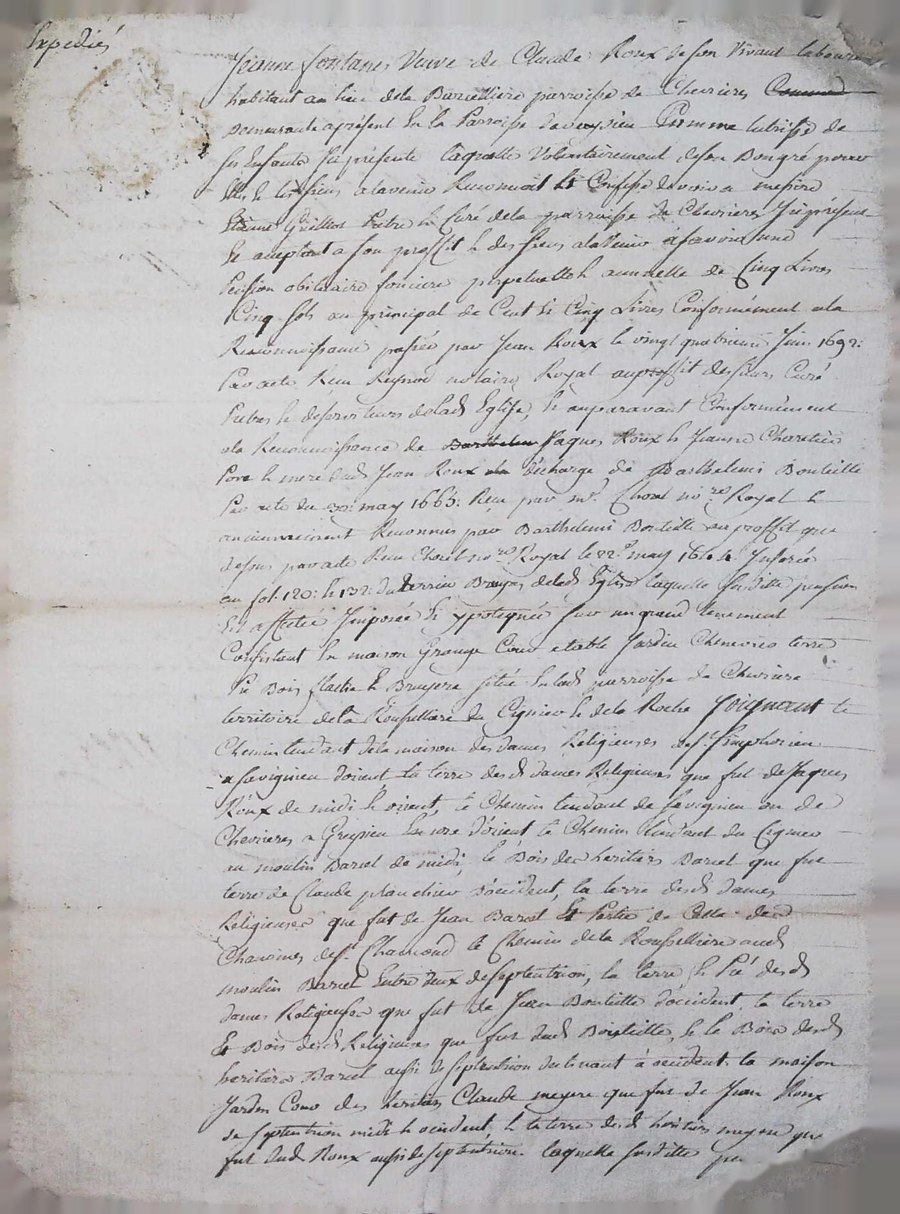 Expediés
Jeanne fontanes Veuve de Claude Roux de son Vivant laboureur
habitant au lieu dela Barcelliere parroisse de Chevrieres
Demeurante apresent En la Parroisse Comme tutrisse de
ses Enfants Icy présente laquelle Volontairement de son Bongré pour
Elle & les siens alavenir Reconnoit Et Confesse devoir a messire
Etienne Guillot Prêtre & Curé dela parroisse de Chevrieres Icy présent
Et aceptant a son proffit & des siens alavenir àsavoir une
Pension obituaire fonciere perpetuelle & annuelle de Cinq Livres
Cinq sols au principal de Cent Et Cinq Livres Conformément ala
Reconnoissance passée par Jean Roux le vingt quatrieme Juin 1692:
Par acte Reçu Reynod notaire Royal auproffit des sieurs Curé
Prêtres & desserviteurs delad Eglise, & auparavant Conformément
ala Reconnoissance de Jaques Roux & Jeanne Charetier
Pere & mere dud Jean Roux décharge de Barthelemi Bouteille
Par acte du 30: may 1665: Reçu par me. Chorel no.re Royal &
anciennement Reconnue par Barthelemi Bouteille au proffit que
dessus par acte Reçu Chorel no.re Royal le 22e may Inserée
au fol: 120: & 132: du terrier delad Eglise laquelle susditte pension
Est affectée Imposée & ypotequée sur un grand tenement
Consistant En maison Grange Cour etable Jardin Chenevier terre
Pré Bois & Bruyere situé Enlad parroisse de Chevriere
territoire dela Rousselliere de Cignieu & dela Roche Joignant le
Chemin tendant dela maison des dames Religieuses de St. Simphorien
a Savignieu d'orient la terre desd dames Religieuses que fut de Jaques
Roux de midi & orient, le Chemin tendant de Savignieu ou de
Chevrieres a Grezieu Encore d'orient le Chemin tendant du Cignieu
au moulin Barcel de midi, le Bois des heritiers Barcel que fut
terre de Claude planchier d'occident, la terre desd dames
Religieuses que fut de Jean Barcel Et Partie de Celle des
Chanoines de St. Chamond le Chemin dela Rousselliere aud
moulin Barcel Entre deux de septentrion, la terre & Pré desd
dames Religieuses que fut de Jean Bouteille d'occident la terre
Et Bois desd Religieuses que fut dud Bouteille, & le Bois desd
heritiers Barcel aussi de septentrion declinant à occident la maison
Jardin Cour des heritiers Claude meyere que fut de Jean Roux
de septentrion midi & occident & la terre desd heritiers meyere que
fut dud Roux aussi de septentrion laquelle susditte